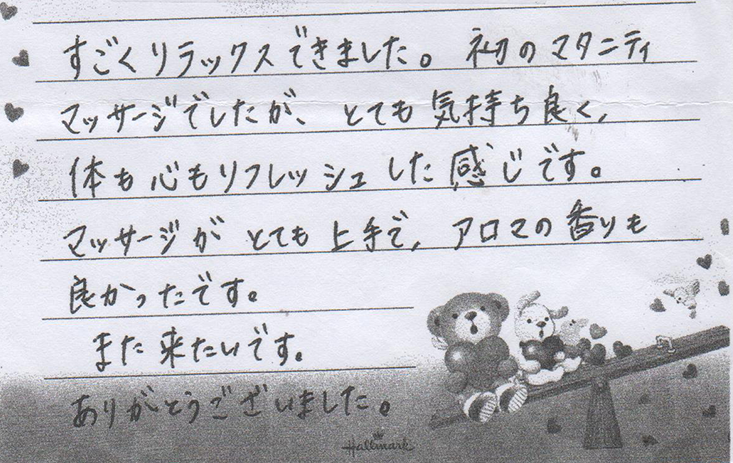 すごくリラックスできました。初のマタニティ
マッサージでしたが、とても気持ち良く、
体も心もリフレッシュした感じです。
マッサージがとても上手で、アロマの香りも
良かったです。
また来たいです。
ありがとうございました。
Hallmark